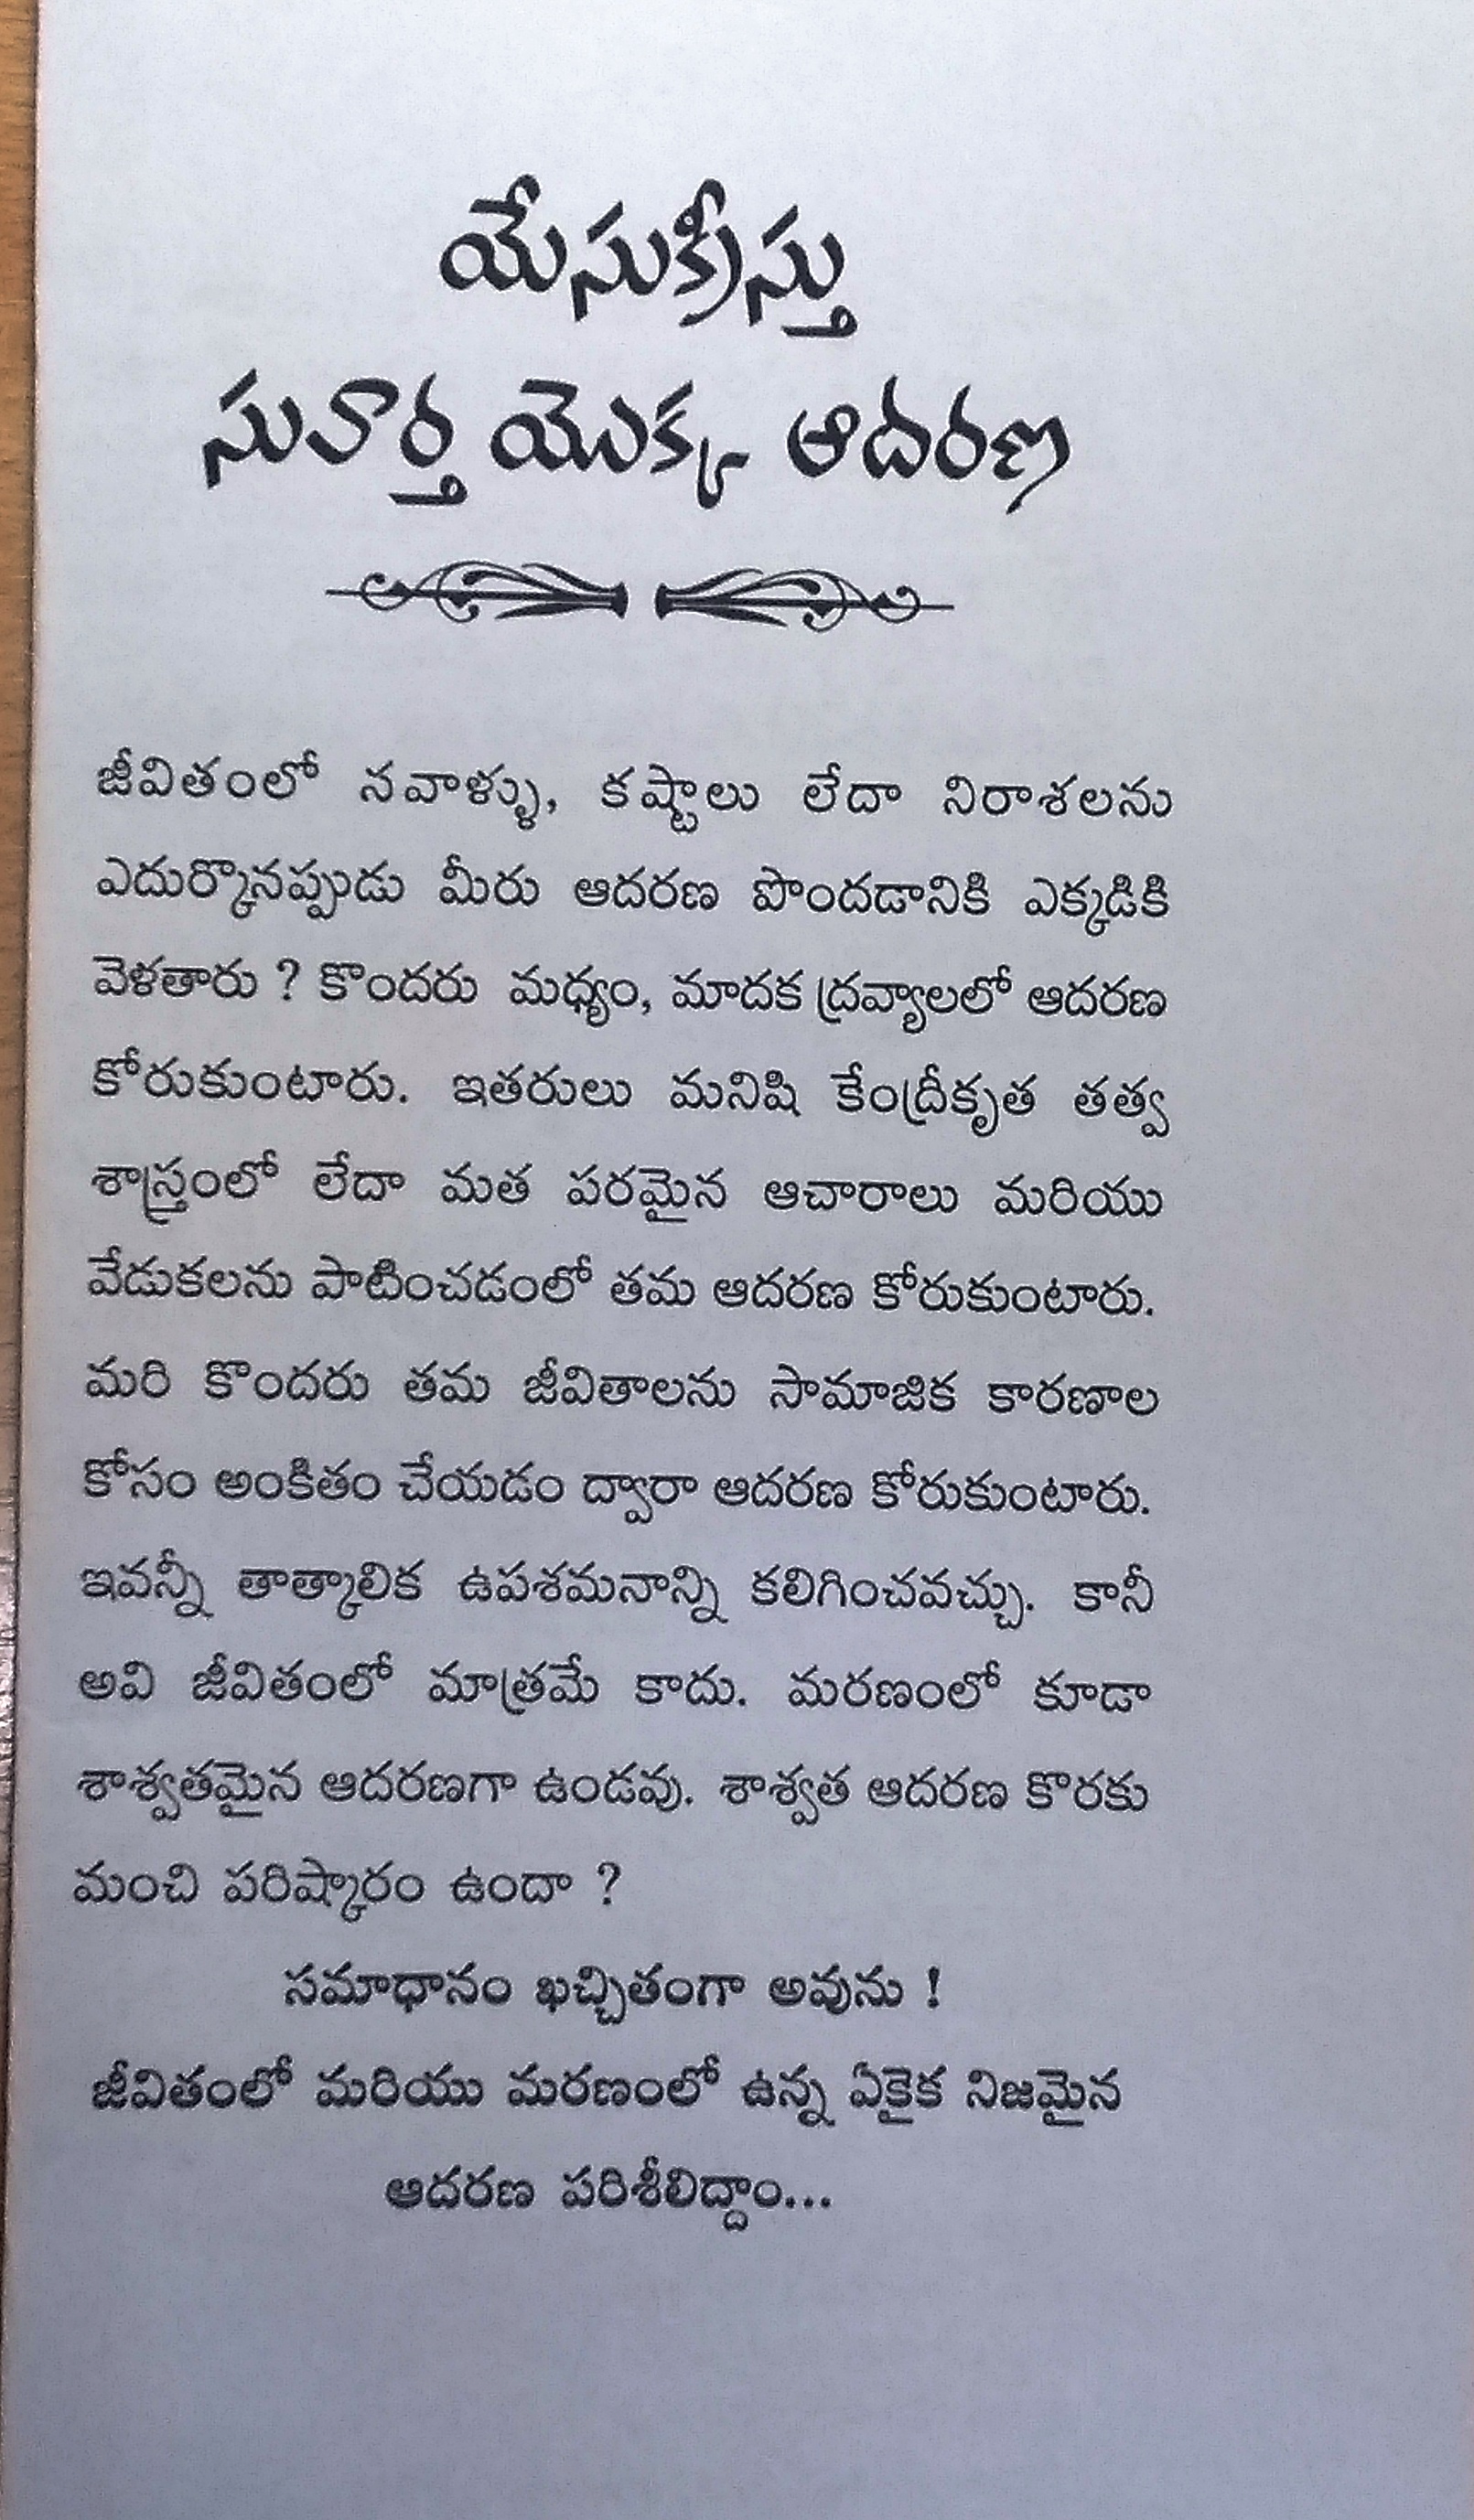 యేసుక్రీస్తు
సువార్త యొక్క ఆదరణ
జీవితంలో నవాళ్ళు, కష్టాలు లేదా నిరాశలను
ఎదుర్కొనప్పుడు మీరు ఆదరణ పొందడానికి ఎక్కడికి
వెళతారు ? కొందరు మధ్యం, మాదక ద్రవ్యాలలో ఆదరణ
కోరుకుంటారు. ఇతరులు మనిషి కేంద్రీకృత తత్వ
శాస్త్రంలో లేదా మత పరమైన ఆచారాలు మరియు
వేడుకలను పాటించడంలో తమ ఆదరణ కోరుకుంటారు.
మరి కొందరు తమ జీవితాలను సామాజిక కారణాల
కోసం అంకితం చేయడం ద్వారా ఆదరణ కోరుకుంటారు.
ఇవన్నీ తాత్కాలిక ఉపశమనాన్ని కలిగించవచ్చు. కానీ
అవి జీవితంలో మాత్రమే కాదు. మరణంలో కూడా
శాశ్వతమైన ఆదరణగా ఉండవు. శాశ్వత ఆదరణ కొరకు
మంచి పరిష్కారం ఉందా ?
సమాధానం ఖచ్చితంగా అవును !
జీవితంలో మరియు మరణంలో ఉన్న ఏకైక నిజమైన
ఆదరణ పరిశీలిద్దాం...